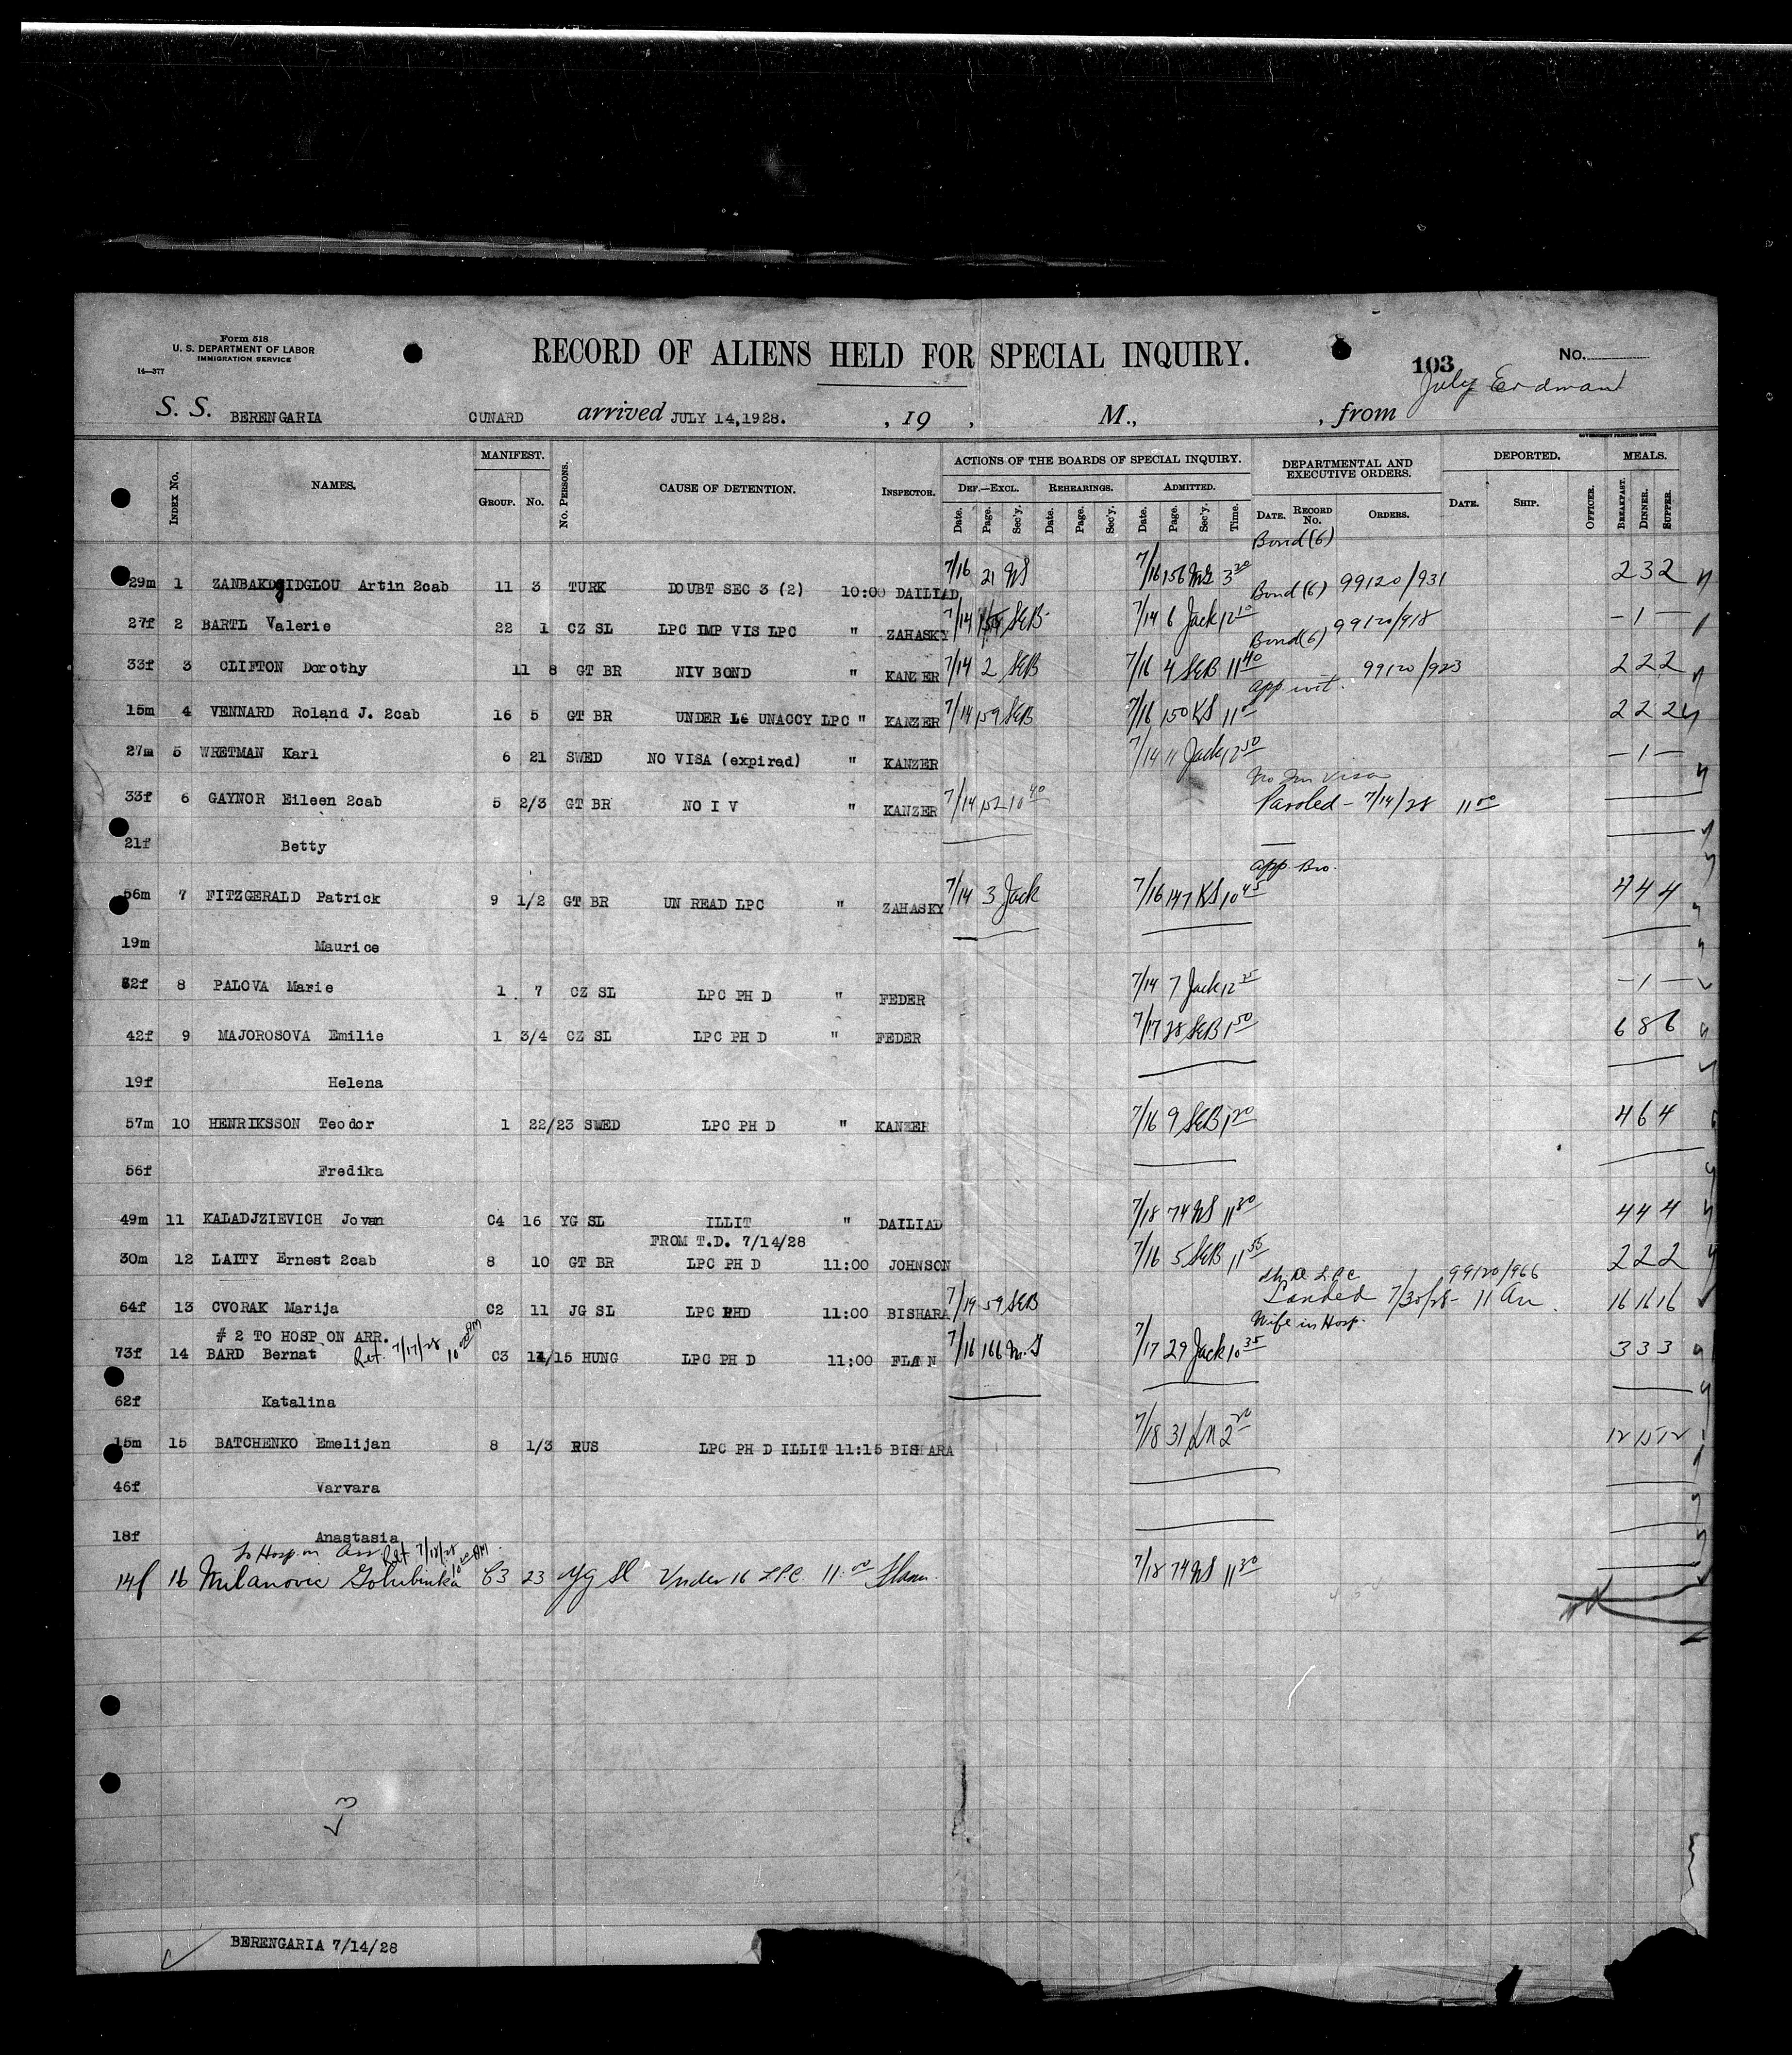 Form 518
U. S. DEPARTMENT OF LABOR
IMMIGRATION SERVICE
14—377
RECORD OF ALIENS HELD FOR SPECIAL INQUIRY.
103
No.
July Erdmant
S. S. BERENGARIA CUNARD arrived JULY 14,1928. , 19 , M., , from
GOVERNMENT PRINTING OFFICE
INDEX No. NAMES. MANIFEST. GROUP. No. No. PERSONS. CAUSE OF DETENTION. INSPECTOR. ACTIONS OF THE BOARDS OF SPECIAL INQUIRY. DEPARTMENTAL AND EXECUTIVE ORDERS. DEPORTED. MEALS.
DEF.—EXCL. REHEARINGS. ADMITTED.
Date. Page. Sec'y. Date. Page. Sec'y. Date. Page. Sec'y. Time. DATE. RECORD No. ORDERS. DATE. SHIP. OFFICER. BREAKFAST. DINNER. SUPPER.
Bond (6)
29m 1 ZANBAKDGIDGLOU Artin 2cab 11 3 TURK DOUBT SEC 3 (2) 10:00 DAILIAD 7/16 21 NS 7/16 156 MG 3 20 99120/931 2 3 2
Bond (6)
27f 2 BARTL Valerie 22 1 CZ SL LPC IMP VIS LPC " ZAHASKY 7/14 SEB 7/14 6 Jack 12 10 99120/918 – 1 –
Bond (6)
33f 3 CLIFTON Dorothy 11 8 GT BR NIV BOND " KANZER 7/14 2 SEB 7/16 4 SEB 11 40 99120/923 2 2 2
app wit.
15m 4 VENNARD Roland J. 2cab 16 5 GT BR UNDER 16 UNACCY LPC " KANZER 7/14 159 SEB 7/16 150 KS 11 00 2 2 2
27m 5 WRETMAN Karl 6 21 SWED NO VISA (expired) " KANZER 7/14 11 Jack 12 50 – 1 –
No Im Visa
33f 6 GAYNOR Eileen 2cab 5 2/3 GT BR NO I V " KANZER 7/14 152 10 40 Paroled – 7/14/28 11 00
21f Betty
app Bro.
56m 7 FITZGERALD Patrick 9 1/2 GT BR UN READ LPC " ZAHASKY 7/14 3 Jack 7/16 147 KS 10 45 4 4 4
19m Maurice
52f 8 PALOVA Marie 1 7 CZ SL LPC PH D " FEDER 7/14 7 Jack 12 25 – 1 –
42f 9 MAJOROSOVA Emilie 1 3/4 CZ SL LPC PH D " FEDER 7/17 28 SEB 1 50 6 8 6
19f Helena
57m 10 HENRIKSSON Teodor 1 22/23 SWED LPC PH D " KANZER 7/16 9 SEB 1 20 4 6 4
56f Fredika
49m 11 KALADJZIEVICH Jovan C4 16 YG SL ILLIT " DAILIAD 7/18 74 NS 11 30 4 4 4
FROM T.D. 7/14/28
30m 12 LAITY Ernest 2cab 8 10 GT BR LPC PH D 11:00 JOHNSON 7/16 5 SEB 11 55 2 2 2
Ph D L.P.C. 99120/966
64f 13 CVORAK Marija C2 11 JG SL LPC PHD 11:00 BISHARA 7/19 59 SEB Landed 7/30/28 – 11 Am. 16 16 16
# 2 TO HOSP ON ARR. Ret. 7/17/28 10 00 AM Wife in Hosp.
73f 14 BARD Bernat C3 14/15 HUNG LPC PH D 11:00 7/16 166 7/17 29 Jack 10 35 3 3 3
62f Katalina
15m 15 BATCHENKO Emelijan 8 1/3 RUS LPC PH D ILLIT 11:15 BISHARA 7/18 31 2 20 12 15 12
46f Varvara
18f Anastasia
To Hosp on Arr. Ret 7/18/28 10 00 AM
14f 16 Milanovic Golubinka C3 23 Yg Sl Under 16 L.P.C. 11:00 7/18 74 NS 11 30
BERENGARIA 7/14/28